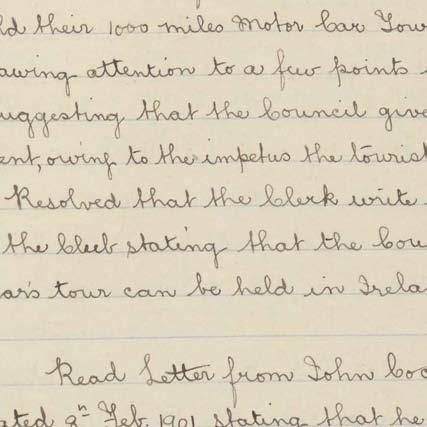 ld their 1000 miles Motor Car Tour
awing attention to a few points
uggesting that the Council give
ent, owing to the impetus the tourist
Resolved that the Clerk write
the Club stating that the Cou
ar's tour can be held in Irela
Read Letter from John Coo
ated 8th Feb. 1901 stating that he